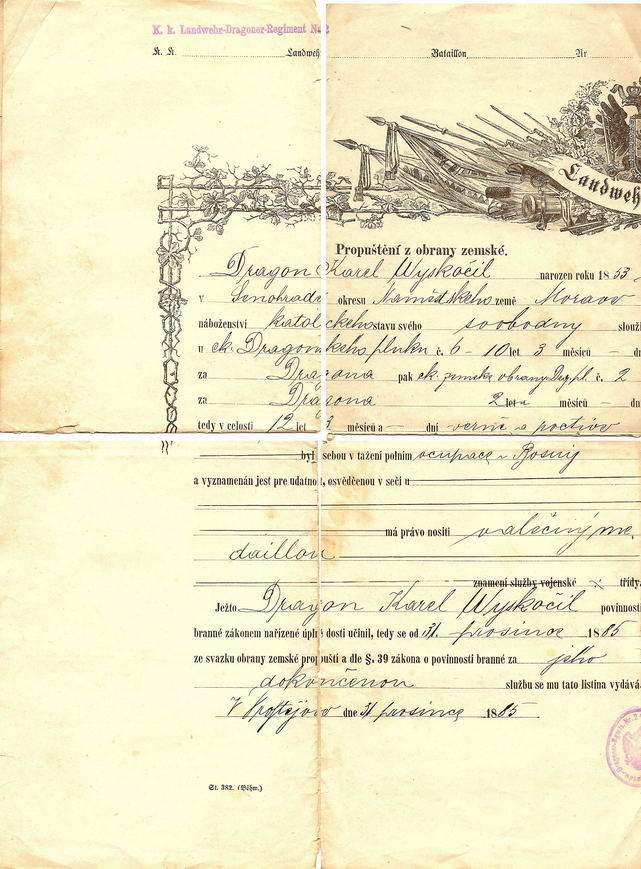 K. k. Landwehr-Dragoner-Regiment Nr 2
K. K. Landweh Bataillon Nr
Landweh
Propuštění z obrany zemské.
Dragon Karel Wyskočil narozen roku 1853
v Senohradě okresu Naměštského země Morave
náboženství katolickeho stavu svého svobodny slouži
u ck. Dragonskeho plnku č. 6 - 10 let 3 měsíců - dn
za Dragona pak ck. zemske obrany Drg. pl. č. 2
za Dragona 2 let a měsíců - dn
tedy v celosti 12 let 3 měsíců a - dní verně a poctivo
byl sebou v tažení polním ocupace v Bosny
a vyznamenán jest pro udatnost, osvědčenou v seči u
má právo nositi valečný me,
daillon
znamení služby vojenské třídy.
Ježto Dragon Karel Wyskočil povinnosti
branné zákonem nařízené úplně dosti učinil, tedy se od 31. prosince 1885
ze svazku obrany zemské propuští a dle §. 39 zákona o povinnosti branné za jeho
dokončenou službu se mu tato listina vydává.
V dne 31 prosince 1885
St. 382. (Böhm.)